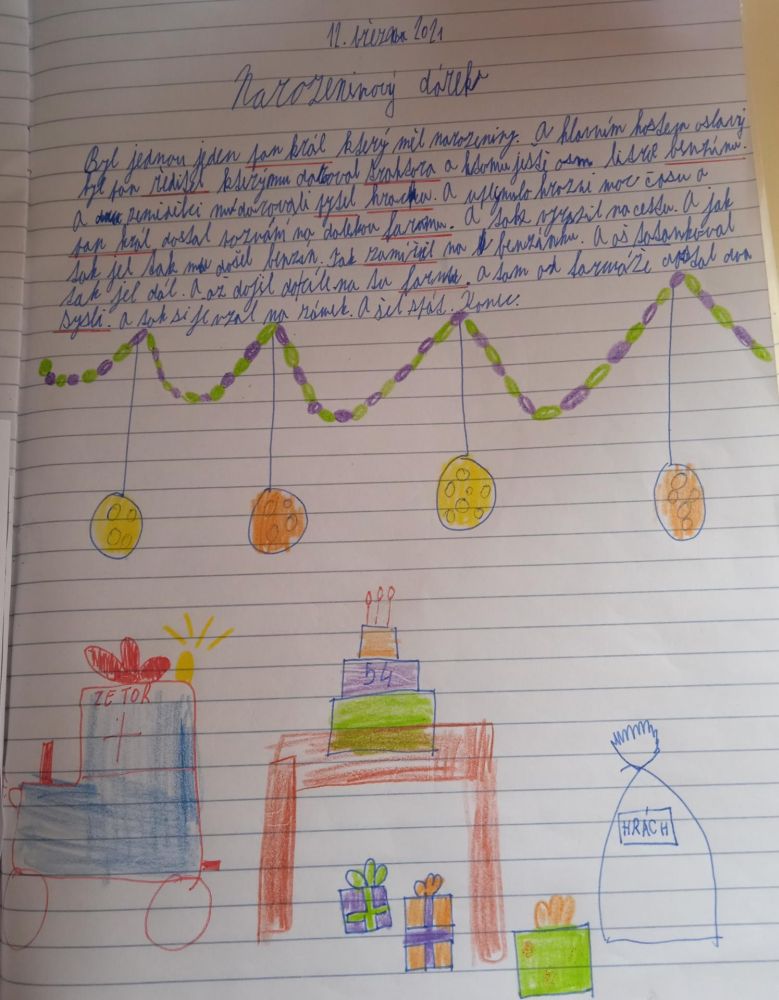 12. března 2021
Narozeninový dárek
Byl jednou jeden pan král který měl narozeniny. A hlavním hostem oslavy
byl pan ředitel kterymu daroval traktora a ktomu ještě osm litrů benzánu.
A zeměnilci mu darovali pytel hrachu. A uplynulo hrozni moc času a
pan král dostal pozvání na dalekou farmu. A tak vyrazil na cestu. A jak
tak jel tak mu došil benzín. Tak zamířil na benzánku. A aš natankoval
tak jel dál. A az dojil na tu farmu. a tam od farmáře dostal dva
sysli. a tak si je vzal na zámek. A šel spát. Konec.
ZETOR
54
HRÁCH